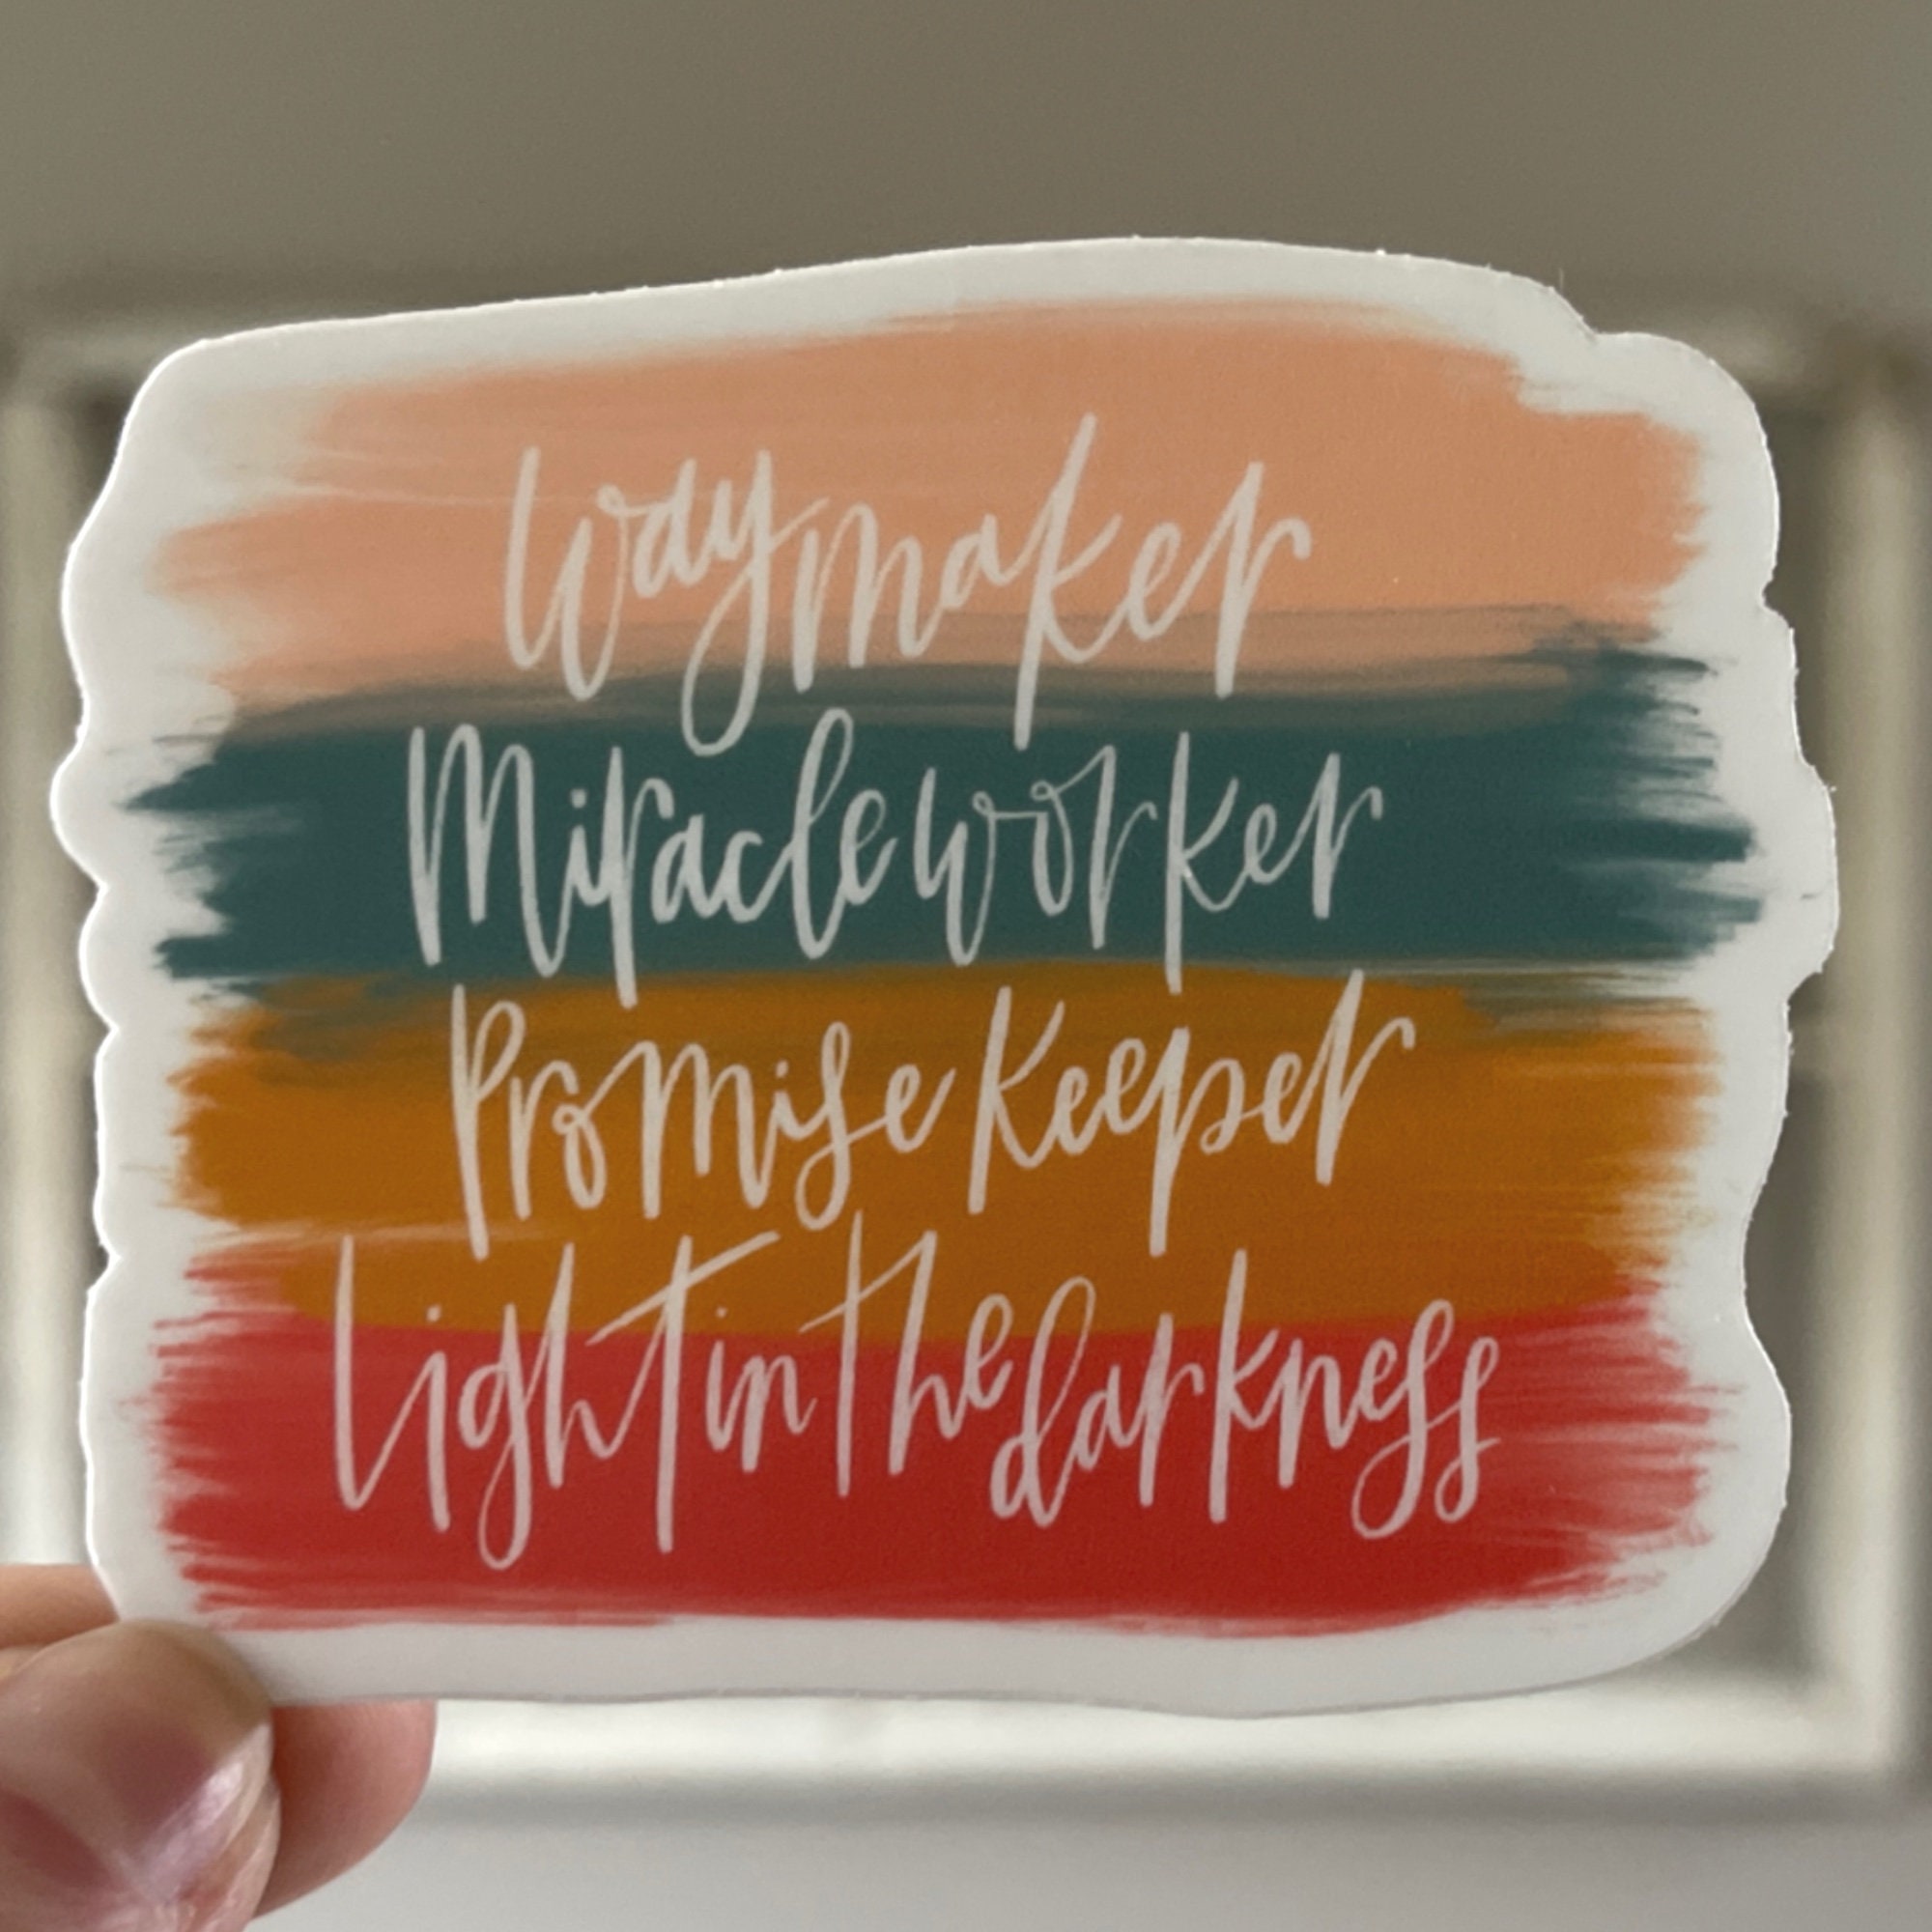 Waymaker
Miracle worker
Promise Keeper
Light in the darkness